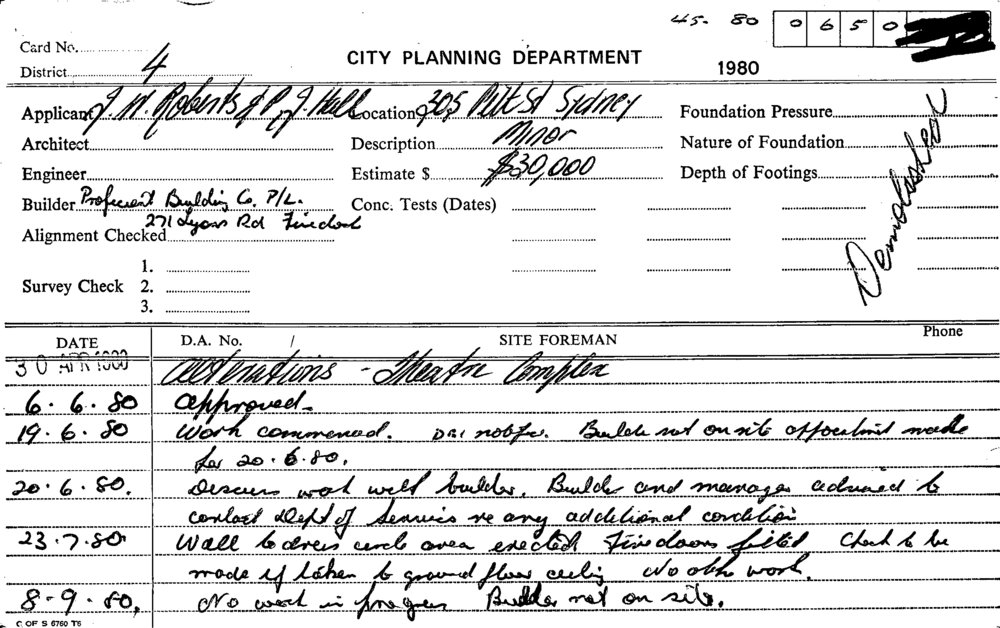 45. 80 0650
Card No.
District 4
CITY PLANNING DEPARTMENT
1980
Applicant J. W. Roberts & P. J. Hall Location 305 Pitt St Sydney Foundation Pressure
Architect Description Minor Nature of Foundation
Engineer Estimate $ $30,000 Depth of Footings
Builder Proficient Building Co. P/L. Conc. Tests (Dates)
271 Lyons Rd Fivedock
Alignment Checked
1.
Survey Check 2.
3.
DATE D.A. No. SITE FOREMAN Phone
30 APR 1980 Alterations - Theatre Complex
6.6.80 Approved.
19.6.80 Work commenced. Builder not on site appointment made
for 20.6.80.
20.6.80. Discuss work with builder. Builder and manager advised to
contact Dept of Services re any additional condition
23.7.80. Wall to dress circle area erected Fire doors fitted Check to be
made if taken to ground floor ceiling No other work.
8-9.80. No work in progress Builder not on site.
C OF S 6760 T6